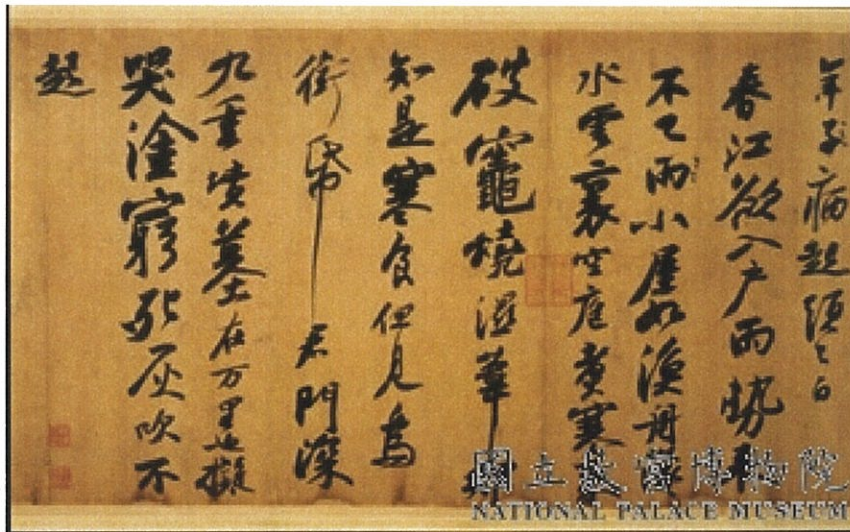 年子病起須已白
春江欲入戶雨勢來
不已雨小屋如漁舟濛
水雲裏空庖煮寒
破竈燒濕葦那
知是寒食但見烏
銜帋君門深
九重墳墓在万里也擬
哭塗窮死灰吹不
起
國立故宮博物院
NATIONAL PALACE MUSEUM